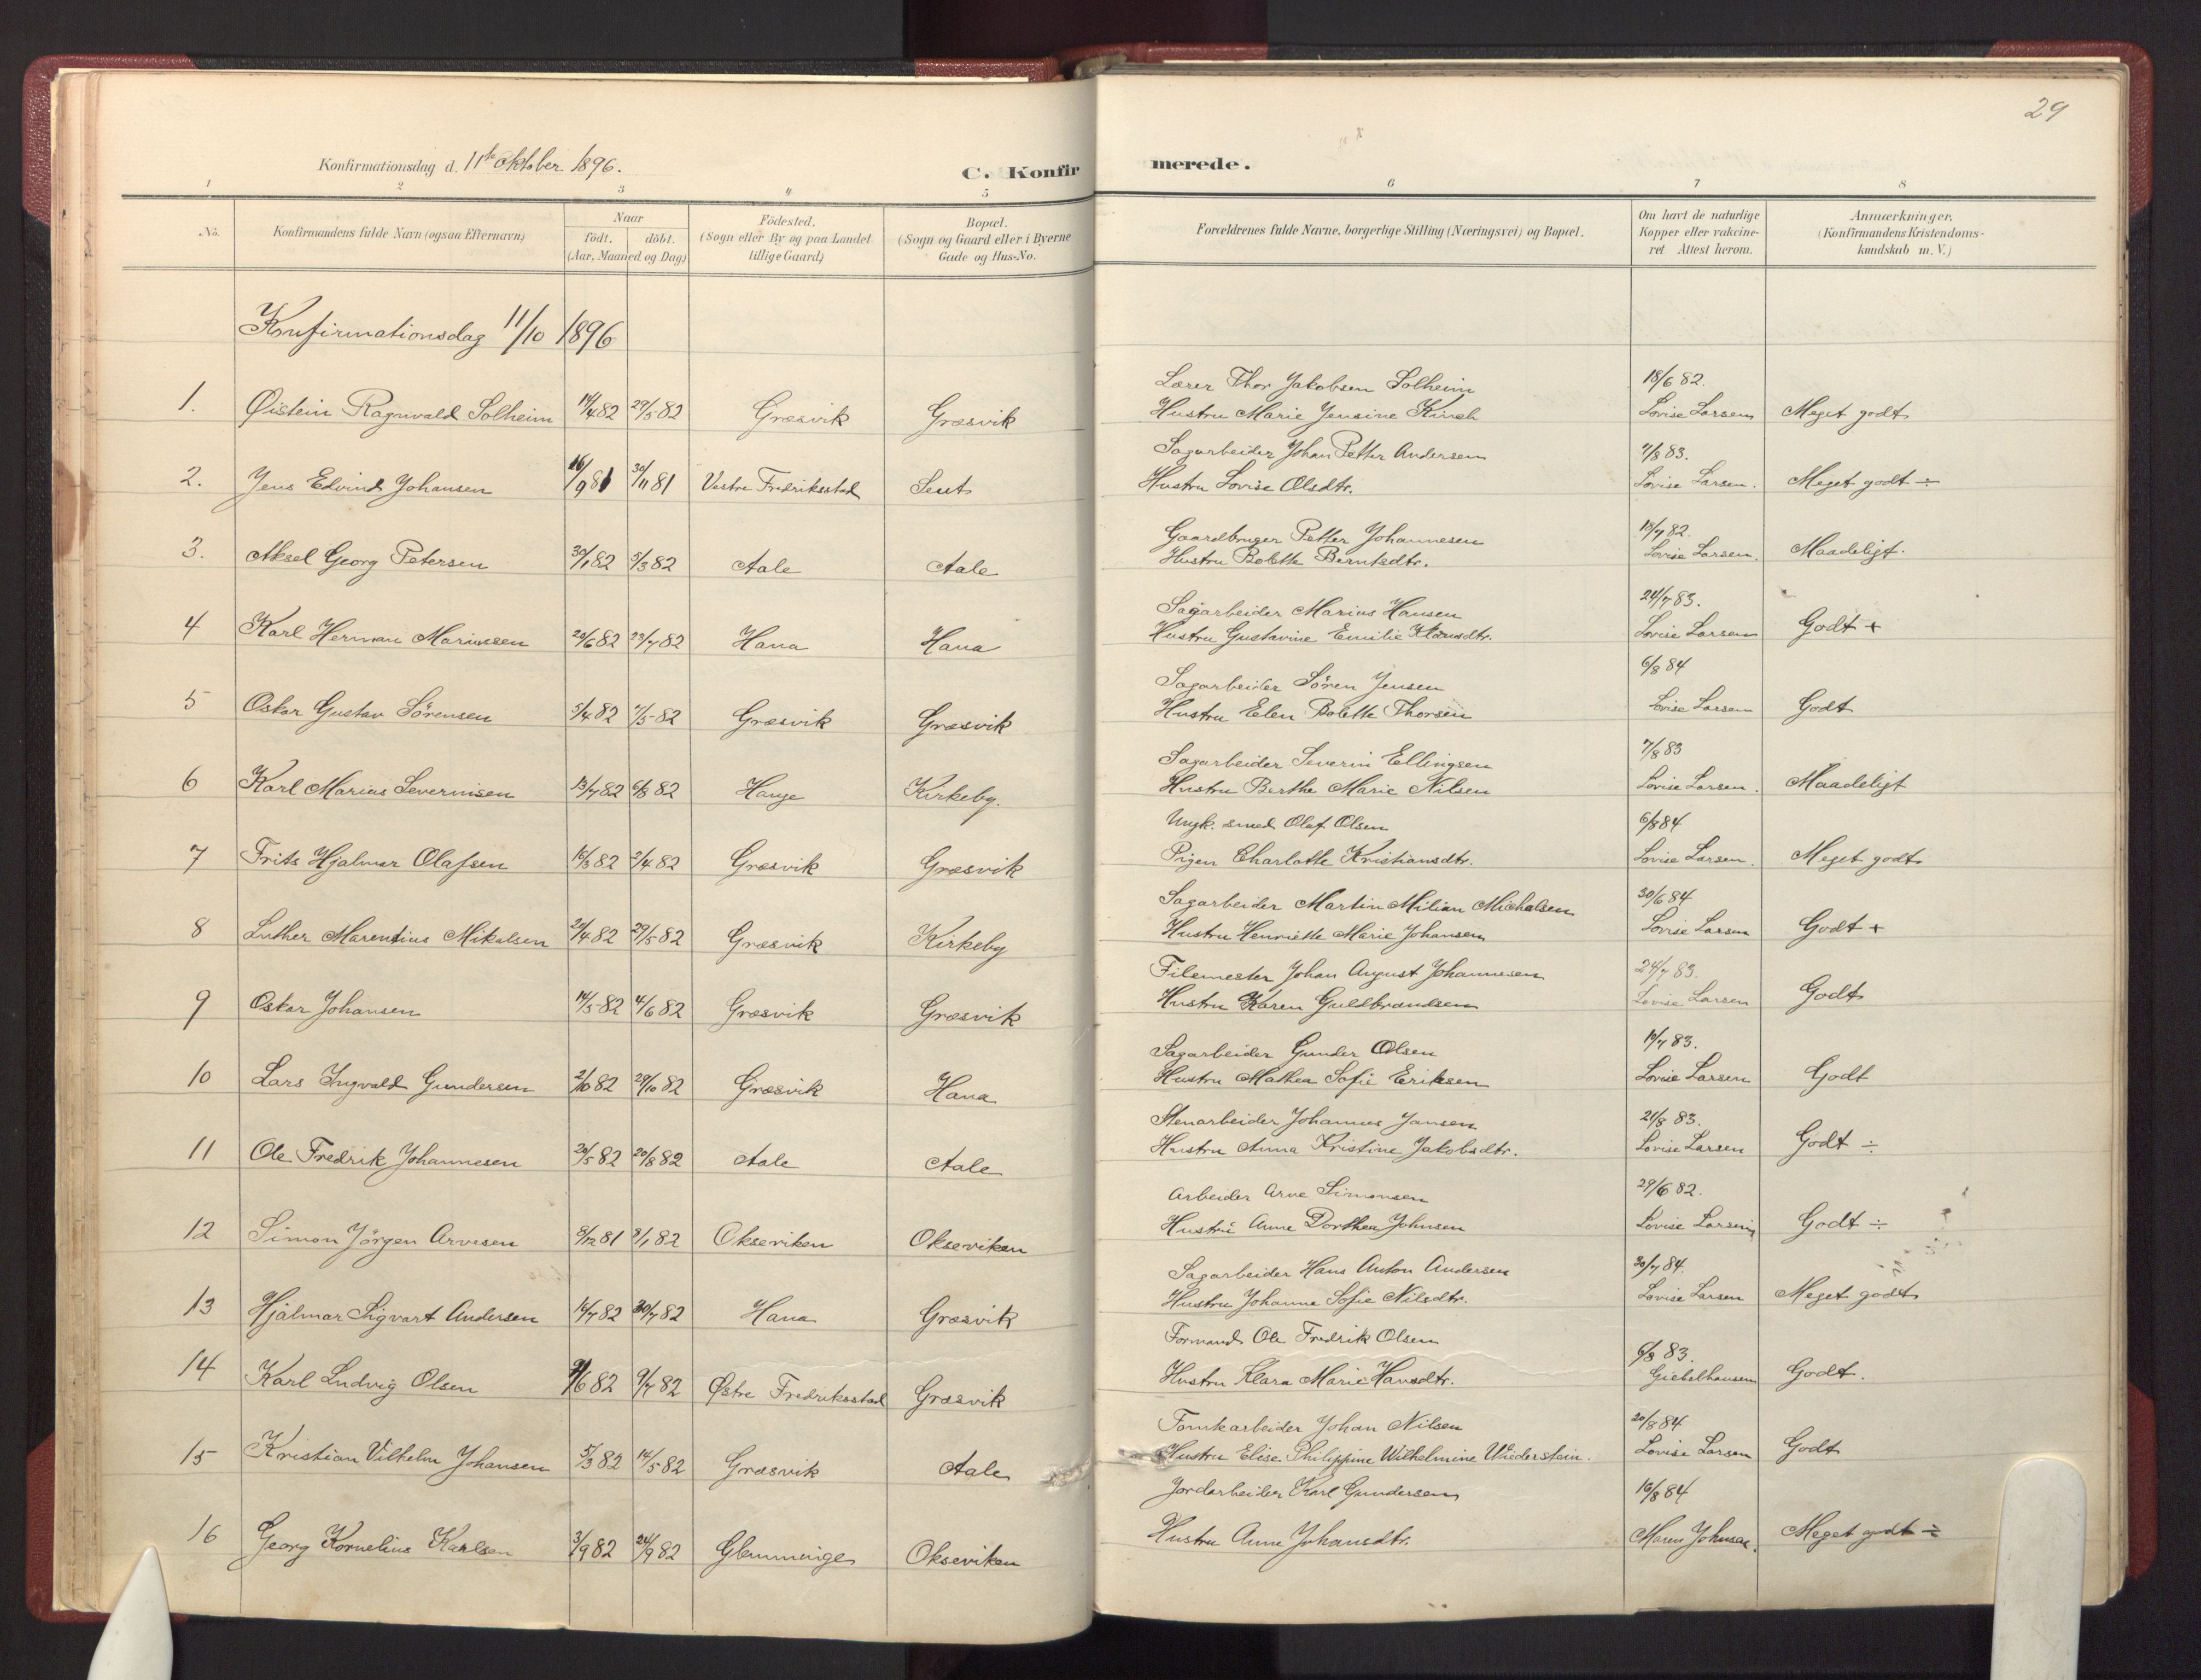 29
Konfirmationsdag d. 11te Oktober 1896.
C. Konfir merede.
1 2 3 4 5 6 7 8
No. Konfirmandens fulde Navn (ogsaa Efternavn) Naar födt. döbt. (Aar, Maaned og Dag) Födested. (Sogn eller By og paa Landet tillige Gaard) Bopæl. (Sogn og Gaard eller i Byerne Gade og Hus-No. Forældrenes fulde Navne, borgerlige Stilling (Næringsvei) og Bopæl. Om havt de naturlige Kopper eller vakcineret Attest herom. Anmærkninger, (Konfirmandens Kristendomskundskab m. V.)
Konfirmationsdag 11/10 1896
Lærer Thor Jakobsen Solheim 18/6 82.
1. Øistein Ragnvald Solheim 14/4 82 29/5 82 Græsvik Græsvik Hustru Marie Jensine Lovise Larsen Meget godt
Sagarbeider Johan Petter Andersen 7/8 83.
2. Jens Edvind Johansen 16/9 81 30/11 81 Vestre Fredriksstad Seut Hustru Lovise Olsdtr. Lovise Larsen. Meget godt ÷
Gaardbruger Petter Johannesen 18/7 82.
3. Aksel Georg Petersen 30/1 82 5/3 82 Aale Aale Hustru Bolette Berntsdtr. Lovise Larsen. Maadeligt.
Sagarbeider Marius Hansen 24/7 83.
4 Karl Herman Mariussen 20/6 82 23/7 82 Hana Hana Hustru Gustavine Emilie Lovise Larsen Godt +
Sagarbeider Sören Jensen 6/8 84
5 Oskar Gustav Sörensen 5/4 82 7/5 82 Græsvik Græsvik Hustru Elen Bolette Thorsen Lovise Larsen Godt
Sagarbeider Severin Ellingsen 7/8 83
6 Karl Marius Severinsen 13/7 82 6/8 82 Hauge Kirkeby. Hustru Berthe Marie Nilsen Lovise Larsen. Maadeligt
Ungk. smed Olaf Olsen 6/8 84
7 Frits Hjalmar Olafsen 15/3 82 2/4 82 Græsvik Græsvik Pigen Charlotte Kristiansdtr. Lovise Larsen. Meget godt
Sagarbeider Martin Milian Michalsen 30/6 84
8 Luther Marentius Mikalsen 21/4 82 29/5 82 Græsvik Kirkeby Hustru Henriette Marie Johansen Lovise Larsen Godt +
Filemester Johan August Johannesen 24/7 83.
9 Oskar Johansen 14/5 82 4/6 82 Græsvik Græsvik Hustru Karen Guldbrandsen Lovise Larsen Godt
Sagarbeider Gunder Olsen 19/7 83.
10 Lars Ingvald Gundersen 2/10 82 29/10 82 Græsvik Hana Hustru Mathea Sofie Eriksen Lovise Larsen Godt
Stenarbeider Johannes Jansen 21/8 83.
11 Ole Fredrik Johannesen 30/5 82 20/8 82 Aale Aale Hustru Anna Kristine Jakobsdtr. Lovise Larsen Godt ÷
Arbeider Arve Simonsen 29/6 82.
12 Simon Jörgen Arvesen 8/12 81 8/1 82 Okseviken Okseviken Hustru Anne Dorthea Johnsen Lovise Larsen Godt ÷
Sagarbeider Hans Anton Andersen 30/7 84.
13 Hjalmar Sigvart Andersen 14/7 82 30/7 82 Hana Græsvik Hustru Johanne Sofie Nilsdtr. Lovise Larsen Meget godt
Formand Ole Fredrik Olsen 6/8 83.
14 Karl Ludvig Olsen 9/6 82 9/7 82 Østre Fredriksstad Græsvik Hustru Klara Marie Hansdtr. Giebelhausen Godt.
Tomtearbeider Johan Nilsen 20/8 84
15 Kristian Vilhelm Johansen 5/3 82 14/5 82 Græsvik Aale Hustru Elise Philippine Wilhelmine Wiederstein. Lovise Larsen Godt
Jordarbeider Karl Gundersen 16/8 84
16 Georg Kornelius Karlsen 3/9 82 24/9 82 Glemminge Okseviken Hustru Anne Johansdtr. Maren Johnsen. Meget godt ÷